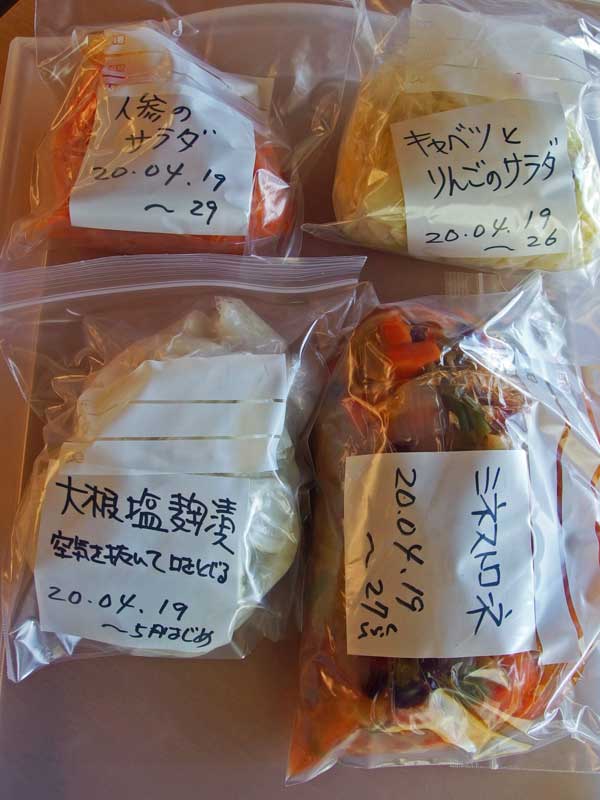 人参の
サラダ
20.04.19
～29
キャベツと
りんごのサラダ
20.04.19
～26
大根塩麹漬
空気を抜いて口をとじる
20.04.19
～5月はじめ
ミネストロネ
20.04.19
～27